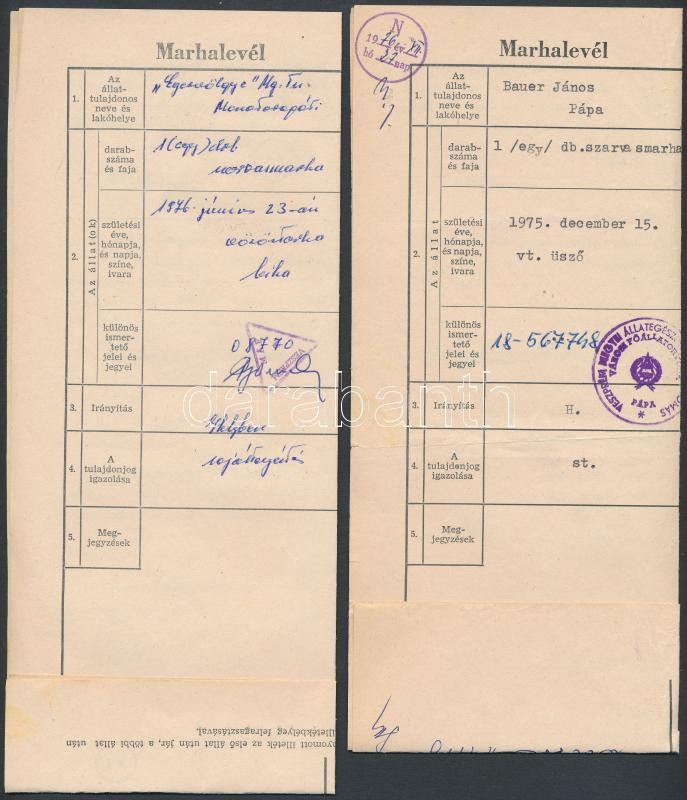 Marhalevél
1.
Az
állat-
tulajdonos
neve és
lakóhelye
Az állat(ok)
2.
darab-
száma
és faja
1 (egy) drb
születési
éve,
hónapja,
és napja,
színe,
ivara
1976. június 23-án
vöröstarka
bika
különös
ismer-
tető
jelei és
jegyei
08770
3.
Irányítás
Helyben
4.
A
tulajdonjog
igazolása
5.
Meg-
jegyzések
nyomott illeték az első állat után jár, a többi állat után
illetékbélyeg felragasztásával.
N
1976 év VI.
hó nap
Marhalevél
1.
Az
állat-
tulajdonos
neve és
lakóhelye
Bauer János
Pápa
Az állat
2.
darab-
száma
és faja
1 /egy/ db.szarvasmarha
születési
éve,
hónapja,
és napja,
színe,
ivara
1975. december 15.
vt. üsző
különös
ismer-
tető
jelei és
jegyei
18-567748
VESZPRÉM MEGYEI ÁLLATEGÉSZ
PÁPA
3.
Irányítás
H.
4.
A
tulajdonjog
igazolása
st.
5.
Meg-
jegyzések
darabanth